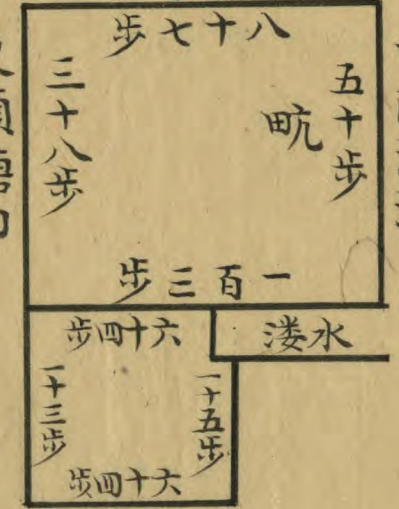 八十七步
五十步
㽘
三十八步
一百三步
水溇
六十四步
一十五步
一十三步
六十四步